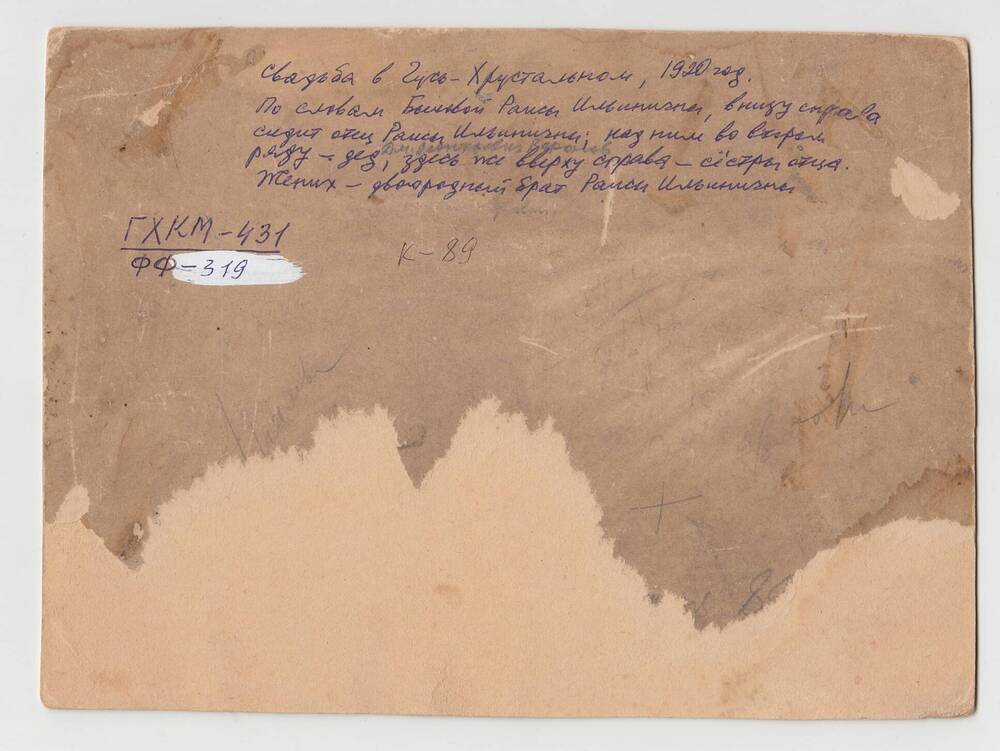 Свадьба в Гусь-Хрустальном, 1920 год.
По словам Раисы Ильиничны, внизу справа
сидит отец Раисы Ильиничны; над ним во втором
ряду – дед, здесь же вверху справа – сёстры отца.
Жених – двоюродный брат Раисы Ильиничны
ГХКМ-431
ФФ-319
К-89